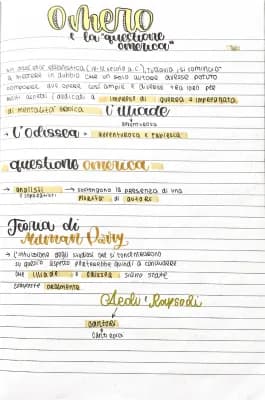 Omero
e la "questione
omerica"
in età ellenistica ( a.C.), tuttavia, si cominciò
a mettere in dubbio che un solo autore avesse potuto
comporre due opere così ampie e diverse tra loro per
molti aspetti (dedicati a imprese di guerra e impregnata
di mentalità eroica l'Iliade
avventurosa
→ l'odissea: avventurosa e fiabesca
questione omerica
→ analisti sostengono la presenza di una
e separatisti pluralità di autori
Teoria di
Milman Parry
↳ l'intuizione degli studiosi che si concentrarono
su questo aspetto porterebbe quindi a concludere
che Iliade e Odissea siano state
composte oralmente
Aedi e Rapsodi
cantori
canto epico